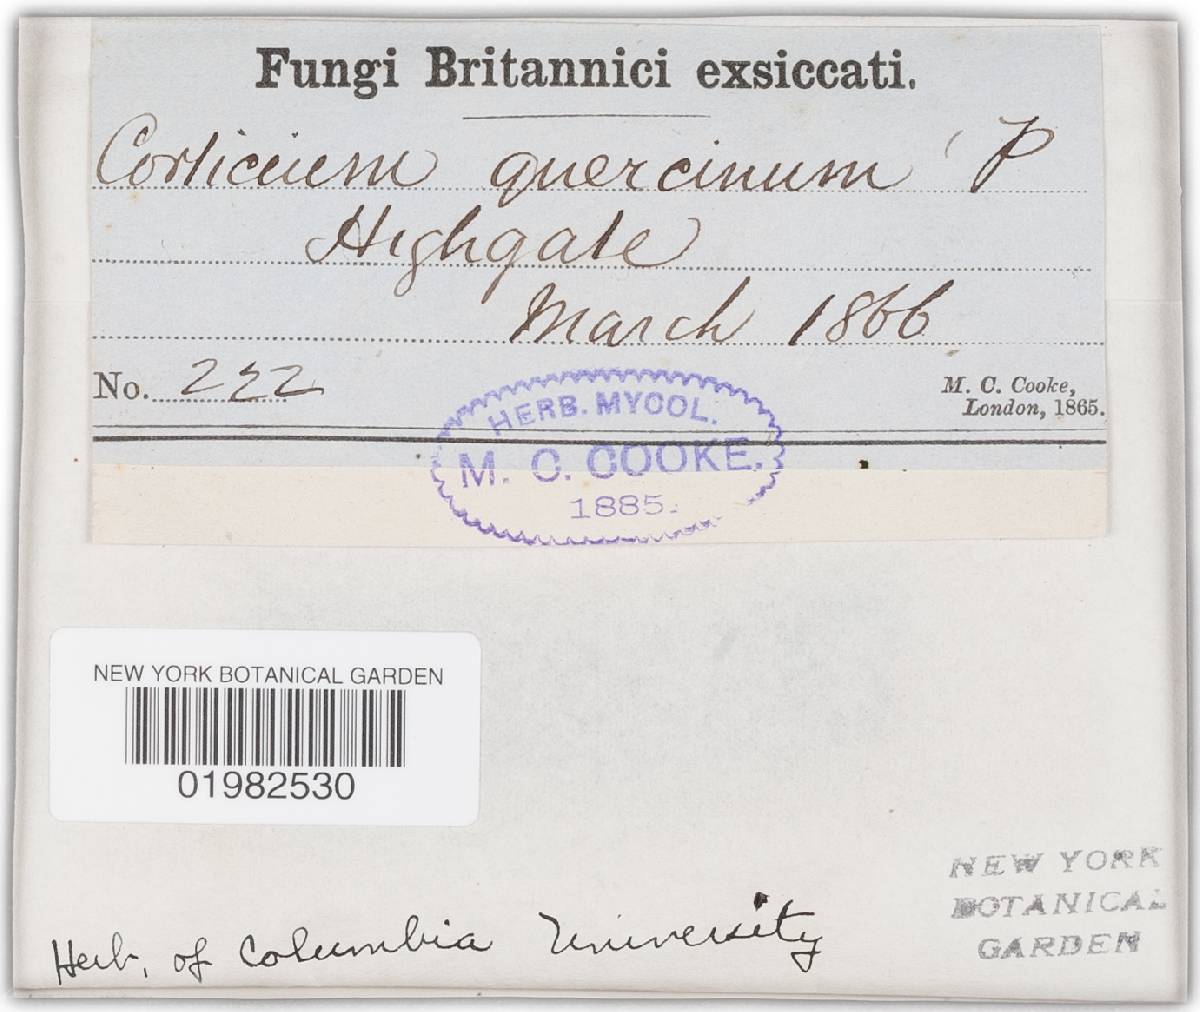 Fungi Britannici exsiccati.
Corticium quercinum P
Highgate
March 1866
No. 222
M. C. Cooke,
London, 1865.
HERB. MYCOL.
M. C. COOKE.
1885.
NEW YORK BOTANICAL GARDEN
01982530
NEW YORK
BOTANICAL
GARDEN
Herb. of Columbia University